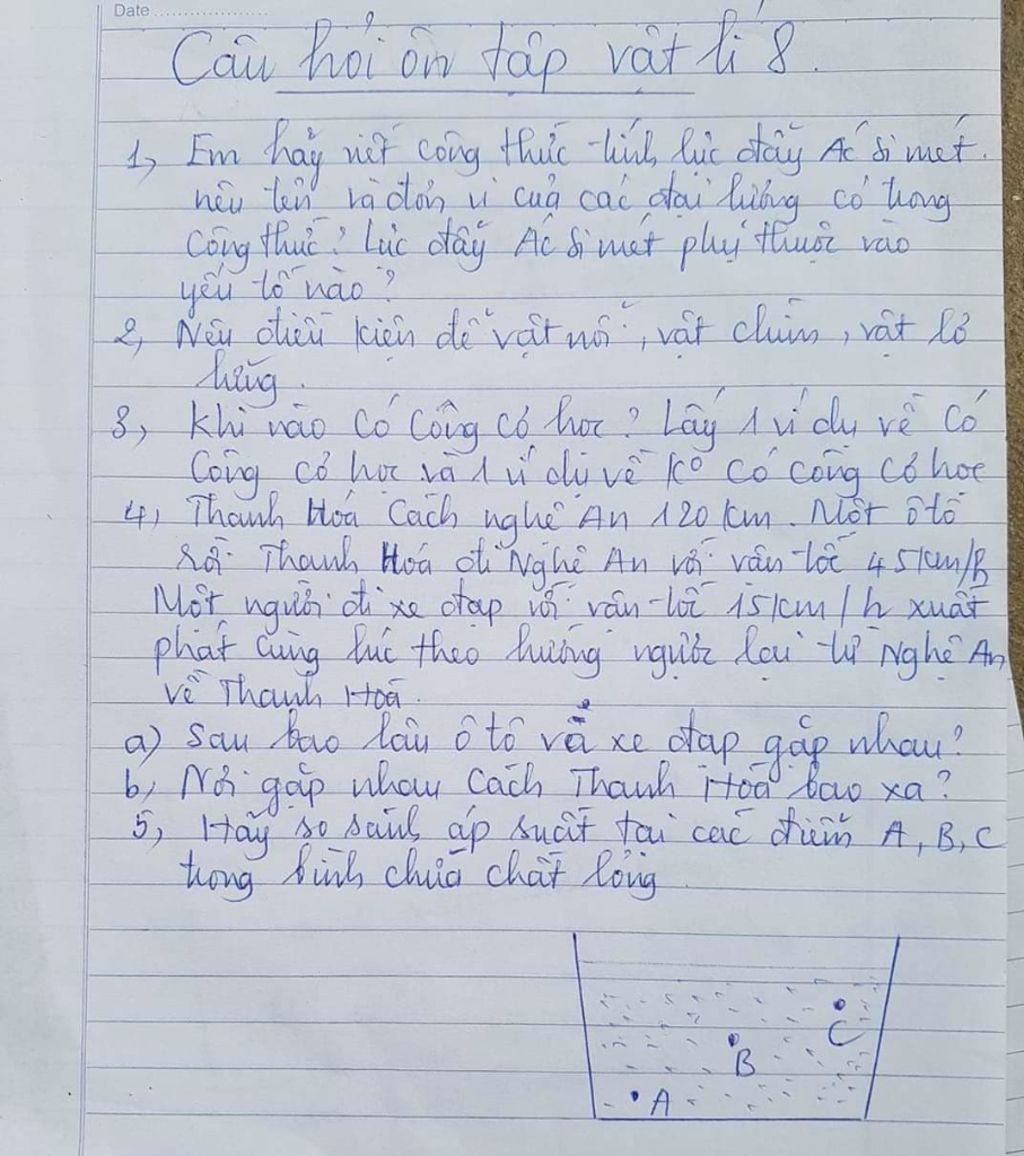 Date
Câu hỏi ôn tập vật lí 8.
1, Em hãy viết công thức tính lực đẩy Ác si mét.
nêu tên và đơn vị của các đại lượng có trong
Công thức? Lực đẩy Ác si mét phụ thuộc vào
yếu tố nào?
2, Nêu điều kiện để vật nổi, vật chìm, vật lơ
lửng.
3, Khi nào có công cơ học? Lấy 1 ví dụ về có
Công cơ học và 1 ví dụ về ko có công cơ học
4, Thanh Hoá Cách nghệ An 120 km. Một ô tô
rời Thanh Hoá đi Nghệ An với vận tốc 45km/h
Một người đi xe đạp với vận tốc 15km/h xuất
phát cùng lúc theo hướng ngược lại từ Nghệ An
về Thanh Hoá.
a) Sau bao lâu ô tô và xe đạp gặp nhau?
b, Nơi gặp nhau Cách Thanh Hoá bao xa?
5, Hãy so sánh áp suất tại các điểm A, B, C
trong bình chứa chất lỏng
C
B
A